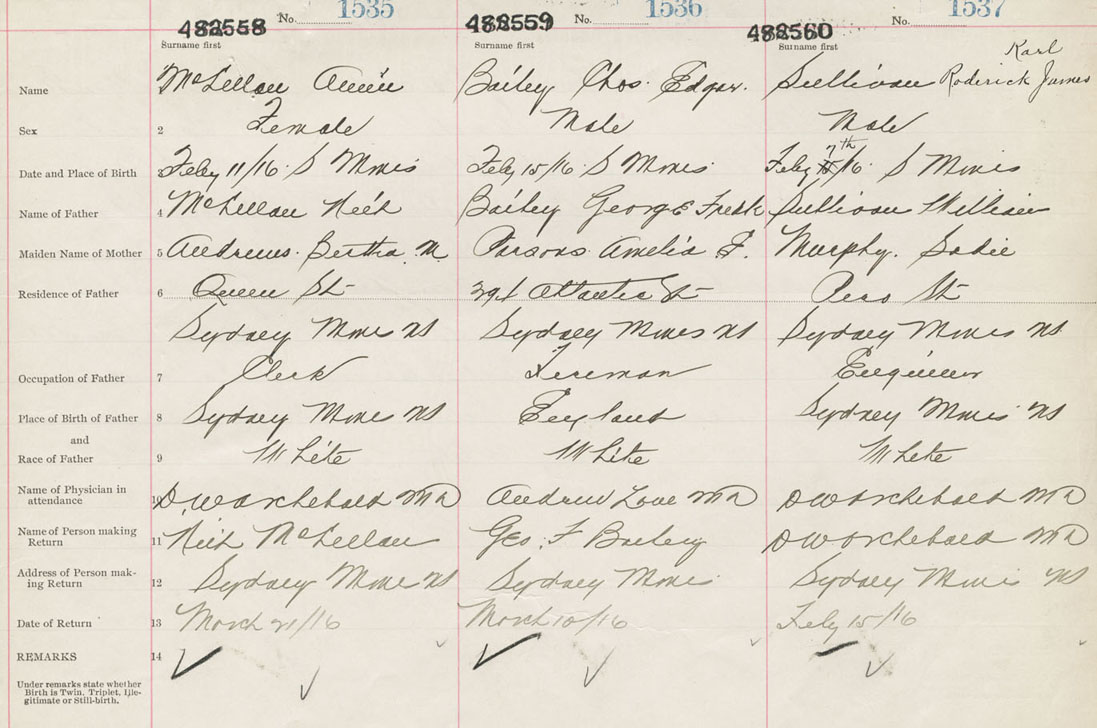 482558 No. 1535 488559 No. 1536 488560 No. 1537
Surname first Surname first Surname first
Karl
Name McLellan Bailey Chas. Edgar. Sullivan Roderick James
Sex 2 Female Male Male
7th
Date and Place of Birth Feby 11/16. S Mines Feby 15/16 S Mines Feby /16. S Mines
Name of Father 4 McLellan Neil Bailey George Fredk Sullivan William
Maiden Name of Mother 5 Andrews. Bertha M Parsons Amelia E. Murphy. Sadie
Residence of Father 6 Queen St Atlantic St St
Sydney Mines NS Sydney Mines NS Sydney Mines NS
Occupation of Father 7 Clerk Fireman Engineer
Place of Birth of Father 8 Sydney Mines NS England Sydney Mines NS
and
Race of Father 9 White White White
Name of Physician in
attendance 10 D W Archibald MD Andrew Love MD D W Archibald MD
Name of Person making
Return 11 Neil McLellan Geo. F Bailey D W Archibald MD
Address of Person mak-
ing Return 12 Sydney Mines NS Sydney Mines Sydney Mines NS
Date of Return 13 March 21/16 March 10/16 Feby 15/16
REMARKS 14
Under remarks state whether
Birth is Twin, Triplet, Ille-
gitimate or Still-birth.